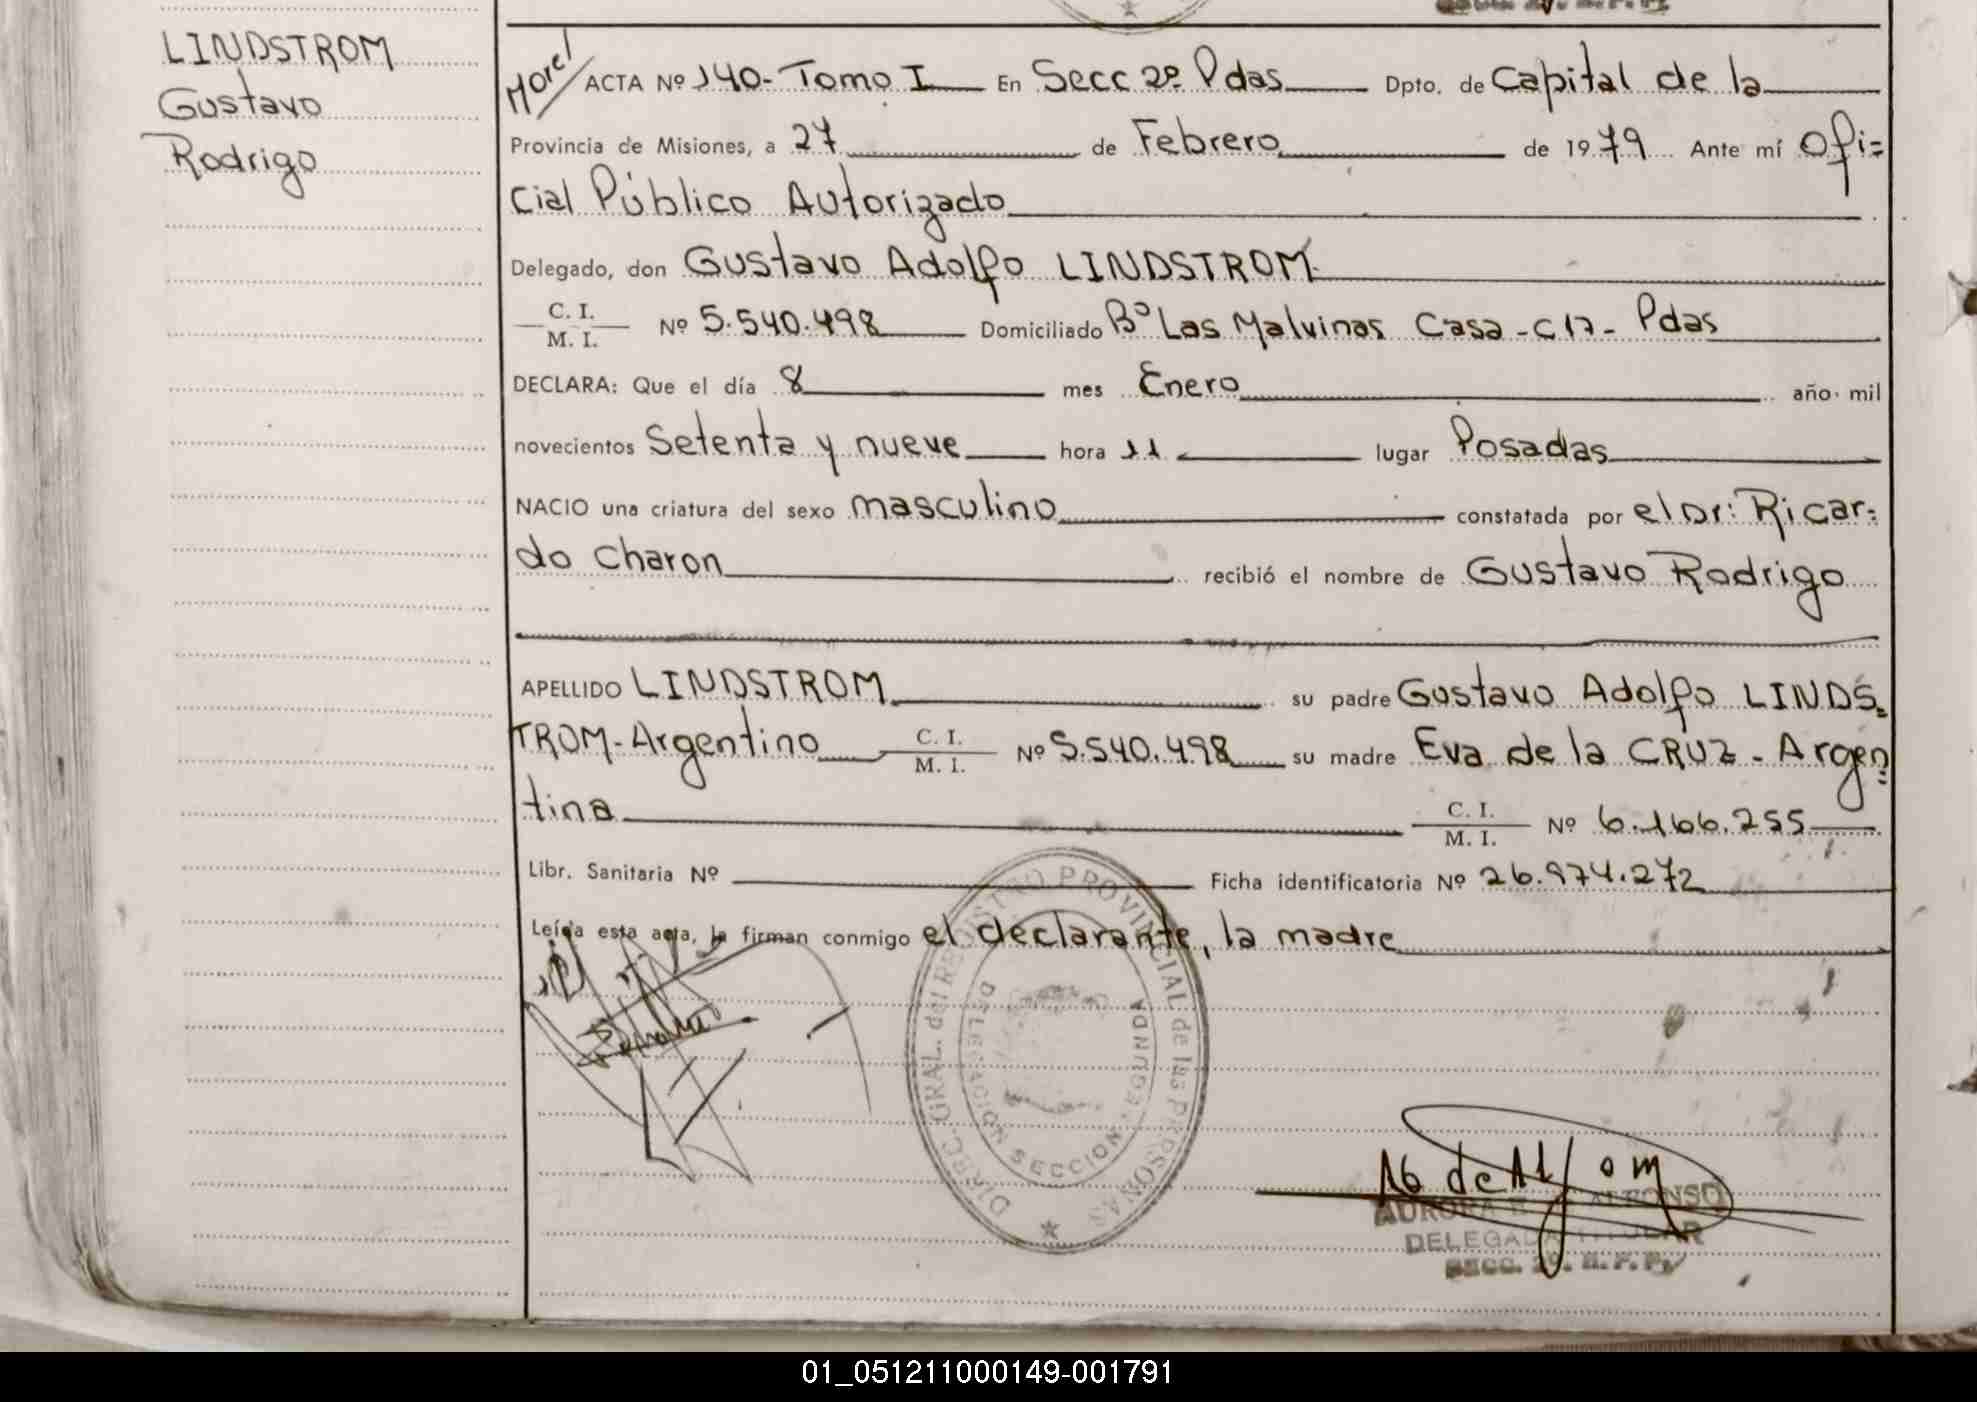 LINDSTROM
Gustavo
Rodrigo
Morel
ACTA Nº 140- Tomo I En Secc 2º Pdas Dpto. de Capital de la
Provincia de Misiones, a 27 de Febrero de 1979 Ante mí Ofi=
cial Público Autorizado
Delegado, don Gustavo Adolfo LINDSTROM
C. I.
M. I. Nº 5.540.498 Domiciliado Bº Las Malvinas Casa-C17- Pdas
DECLARA: Que el día 8 mes Enero año mil
novecientos Setenta y nueve hora 11 lugar Posadas
NACIO una criatura del sexo masculino constatada por el Dr: Ricar=
do Charon recibió el nombre de Gustavo Rodrigo
APELLIDO LINDSTROM su padre Gustavo Adolfo LINDS=
TROM-Argentino C. I. M. I. Nº 5.540.498 su madre Eva de la CRUZ - Argen=
tina C. I. M. I. Nº 6.166.255
Libr. Sanitaria Nº Ficha identificatoria Nº 26.974.272
Leída esta acta, la firman conmigo el declarante, la madre
DIREC. GRAL. del REGISTRO PROVINCIAL de las PERSONAS
DELEGACION SECCION
AURORA ALFONSO
DELEGADA TITULAR
SECC. 2º. R. P. P.
01_051211000149-001791